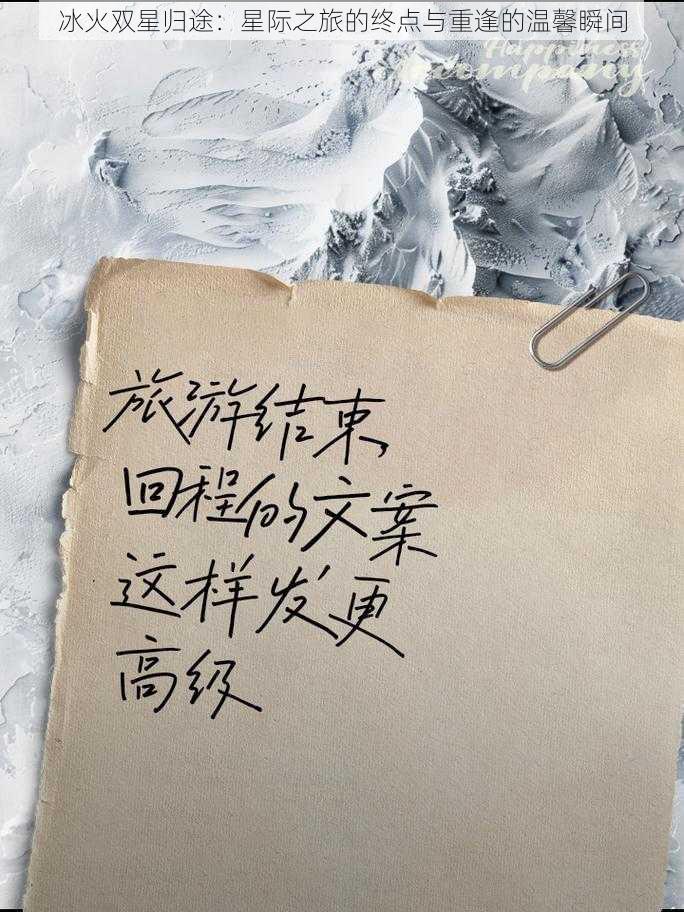 冰火双星归途：星际之旅的终点与重逢的温馨瞬间
Happiness
Accompany
旅游结束，
回程的文案
这样发更
高级